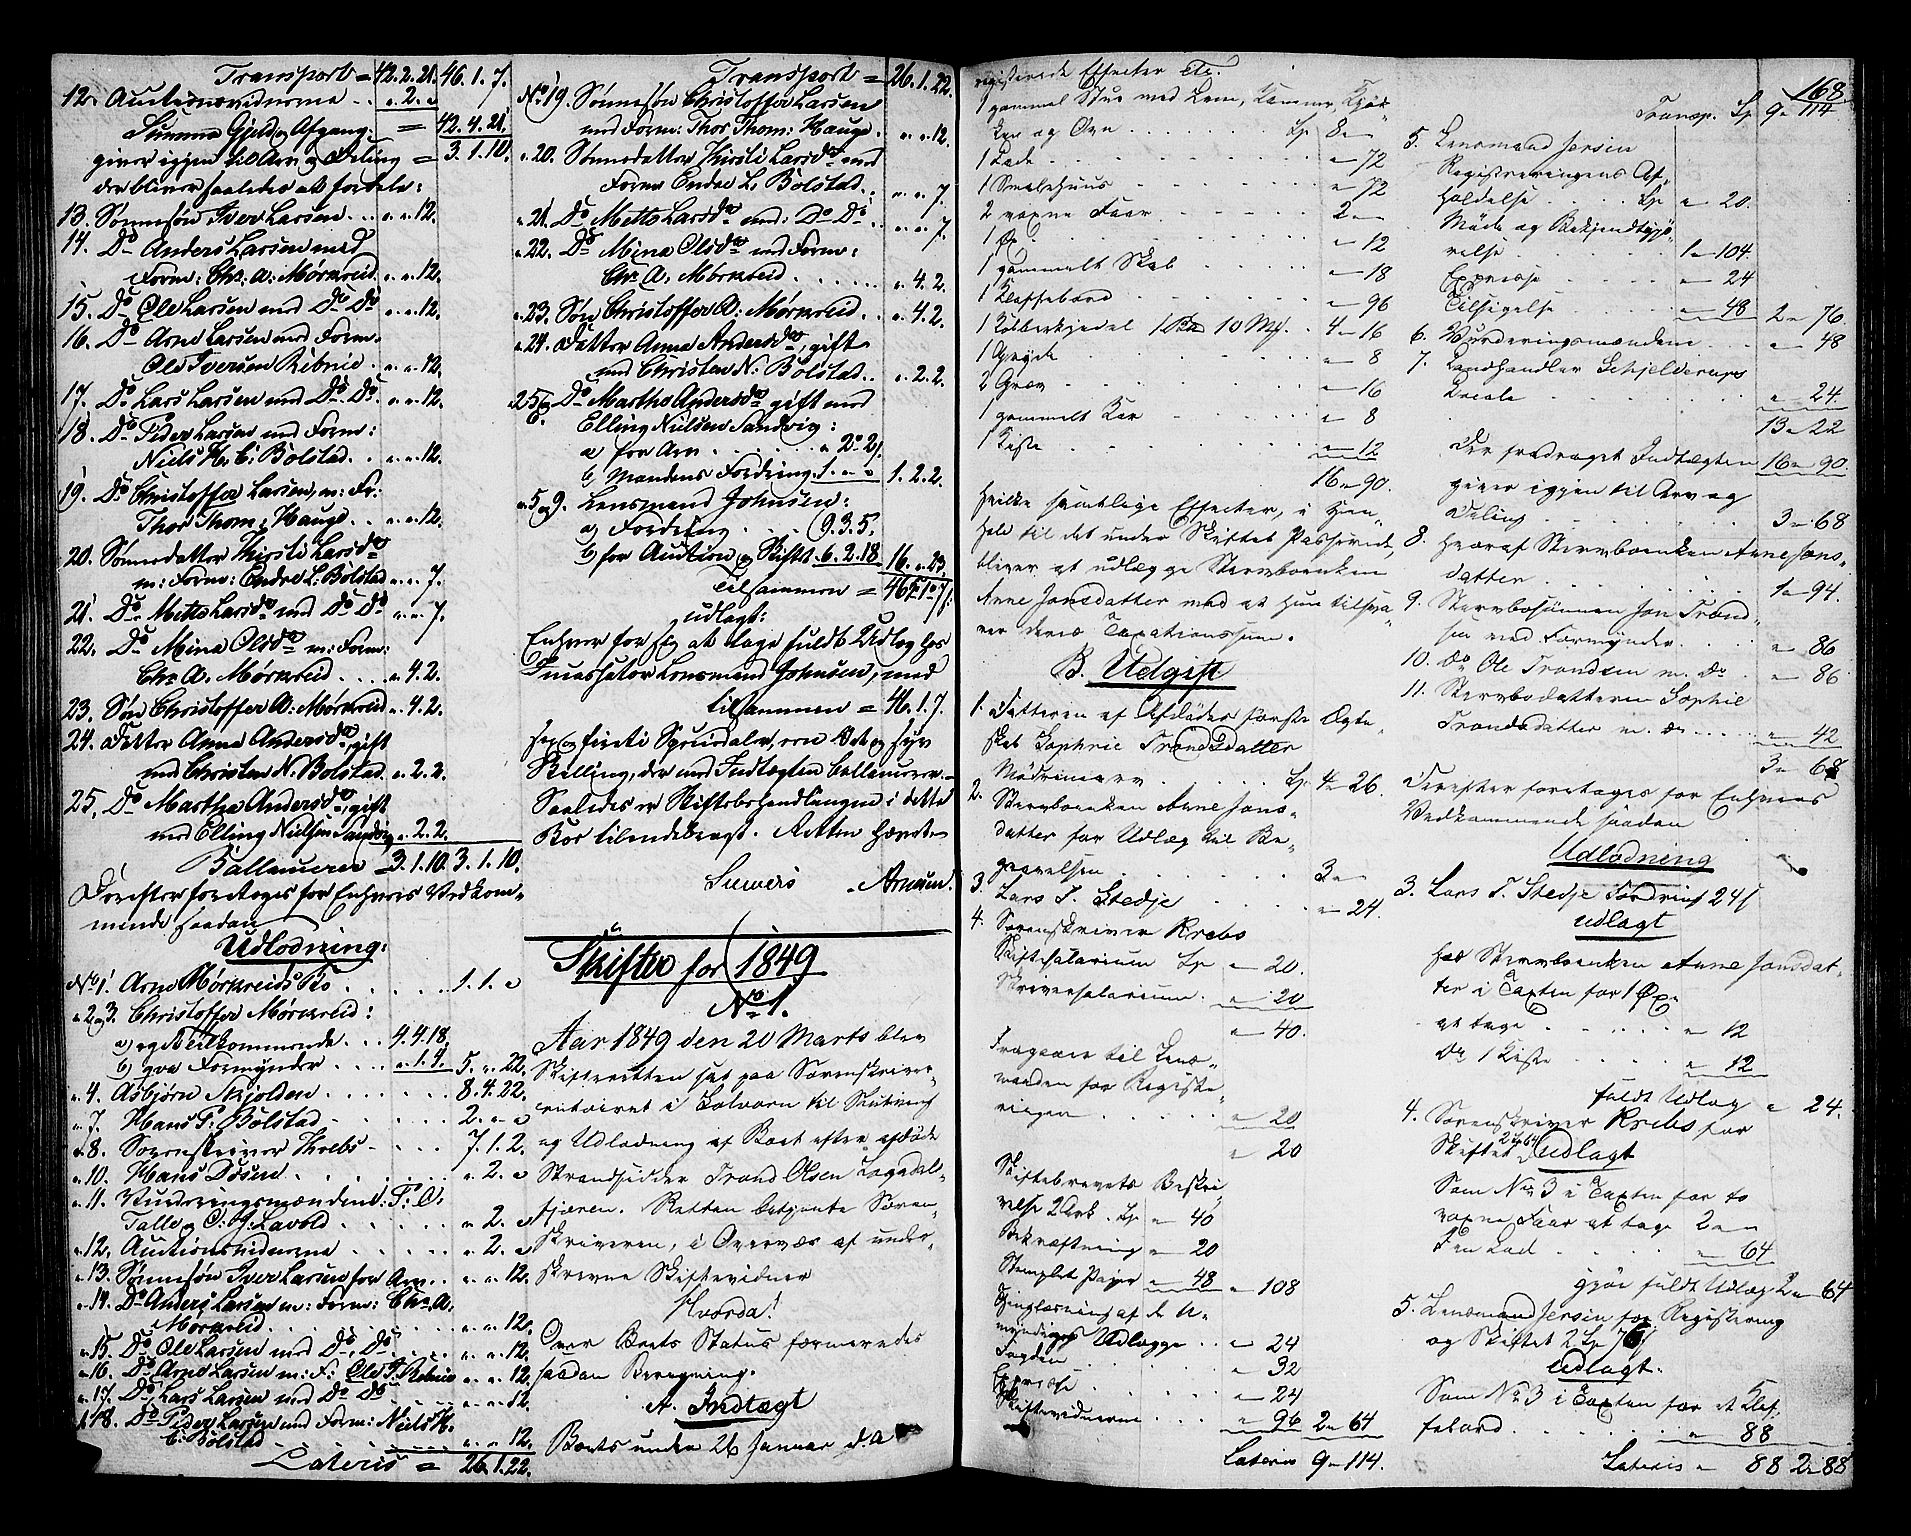 Transport = 42.2.21. 46.1.7.
12. Auctionsvidnerne . . „ 2. „
Summa Gjeld og Afgang: = 42.4.21.
giver igjen til Arv og Deling = 3.1.10.
der bliver saaledes at fordele:
13. Sønnesøn Iver Larsen . . „ „ 12.
14. Do Anders Larsen med
Form: Chr. A. Mørkreid „ „ 12.
15. Do Ole Larsen med Do Do „ „ 12.
16. Do Arne Larsen med Form:
Ole Iversen Rebnie . „ „ 12.
17. Do Lars Larsen med Do Do „ „ 12.
18. Do Peder Larsen med Form:
Niels H. C. Bolstad . . „ „ 12.
19. Do Christoffer Larsen, m: Fr:
Thor Thom: Hauge . . „ „ 12.
20. Sønnedatter Kirsti Larsda
m: Form: Endre L. Bolstad „ „ 7.
21. Do Mette Larsda med Do Do „ „ 7.
22. Do Mina Olsda m: Form:
Chr. A. Mørkreid . . . . „ 4.2.
23. Søn Christoffer A: Mørkreid „ 4.2.
24. Datter Anna Andersda, gift
med Christen N. Bolstad „ 2.2.
25. Do Martha Andersda, gift
med Elling Nielsen Sandvig „ 2.2.
Ballancerer = 3.1.10. 3.1.10.
Derefter foretoges for Enhvers Vedkom-
mende saadan
Udlodning:
No 1. Arne Mørkreids Bo . . . . . 1.1. „
„ 2 og 3. Christoffer Mørkreid:
a) eget Tilkommende . . . 4.4.18.
b) qva Formynder . . . . „ 1.4. 5. „ 22.
„ 4. Asbjørn Skjolden . . . . . . 8.4.22.
„ 7. Hans P. Bolstad . . . . . 2. „ „
„ 8. Sorenskriver Krebs . . . . 7.1.2.
„ 10. Hans Døsen . . . . . „ 2. „
„ 11. Vurderingsmændene P. O.
Talle og O: J: Lavold . . . . . „ 2. „
„ 12. Auctionsvidnerne . . . . . „ 2. „
„ 13. Sønnesøn Iver Larsen for Arv . . „ „ 12.
„ 14. Do Anders Larsen m: Form: Chr. A.
Mørkreid . . . . . „ „ 12.
„ 15. Do Ole Larsen med Do, Do . . . „ „ 12.
„ 16. Do Arne Larsen m: F: Ole I. Rebnie „ „ 12.
„ 17. Do Lars Larsen med Do Do . . . „ „ 12.
„ 18. Do Peder Larsen med Form: Niels H.
C: Bolstad . . . . . „ „ 12.
Lateris = 26.1.22.
Transport = 26.1.22.
No 19. Sønnesøn Christoffer Larsen
med Form: Thor Thom: Hauge . „ „ 12.
„ 20. Sønnedatter Kirsti Larsda med
Form Endre L. Bolstad . . „ „ 7.
„ 21. Do Mette Larsda med: Do Do . . „ „ 7.
„ 22. Do Mina Olsda med Form:
Chr. A. Mørkreid . . . . . . „ 4.2.
„ 23. Søn Christoffer A: Mørkreid . . „ 4.2.
„ 24. Datter Anna Andersda, gift
med Christen N. Bolstad . . „ 2.2.
„ 25 og 6. Do Martha Andersda gift med
Elling Nielsen Sandvig:
a) for Arv . . . . . . „ 2. 2.
b) Mandens Fordring 1. „ „ 1.2.2.
„ 5 og 9. Lensmand Johnsen:
a) Fordring . . . . 9.3.5.
b) for Auction og Skiftet 6.2.18. 16. „ 23.
Tilsammen = 46.1.7.
udlagt:
Enhver for sig at tage fuldt Udlæg hos
Incassator Lensmand Johnsen, med
tilsammen = 46.1.7.
sex og firti Speciedaler, een Ort og syv
Skilling, der med Indtægten ballancerer. –
Saaledes er Skiftebehandlingen i dette
Boe tilendebragt. Retten hævet.
Siewers Arnesen.
Skifter for 1849
No 1.
Aar 1849 den 20 Marts blev
Skifteretten sat paa Sorenskriver-
contoiret i Solvorn til Slutning
og Udlodning af Boet efter afdøde
Strandsidder Trond Olsen Lægdel-
fjæren. Retten betjentes Soren-
skriveren, i Overvær af under-
skrevne Skiftevidner
Hvorda!
Over Boets Status formeredes
saadan Beregning.
A. Indtægt
Boets under 26 Januar d. A
registrerede Effecter etc.
1 gammel Stue med Lem, Kammer, Kjøk-
ken og Ovn . . . . . Sp 8 „
1 Lade . . . . . „ 72
1 Smalehuus . . . . . „ 72
2 voxne Faar . . . . . 2 „
1 Øx . . . . . „ 12
1 gammelt Skab . . . . . „ 18
1 Klaffebord . . . . . „ 96
1 Kobberkjedel 1 Bpd 10 Mk. . 4 „ 16
1 Gryde . . . . . „ 8
2 Grev . . . . . „ 16
1 gammelt Kar . . . . . „ 8
1 Kiste . . . . . „ 12
16 „ 90.
Hvilke samtlige Effecter, i Hen-
hold til det under Skiftet Passerede,
bliver at udlægge Stervboenken
Anne Jonsdatter med at hun tilsva-
rer deres Taxationssum.
B. Udgift
1. Datteren af Afdødes første Ægte-
skab Sophie Trondsdatter
Mødrenearv . . . . . Sp 4 „ 26.
2. Stervboenken Anne Jons-
datter for Udlæg til Be-
gravelsen . . . . . 3 „
3. Lars T. Stedje . . . . . „ 24.
4. Sorenskriver Krebs
Skiftesalarium Sp „ 20.
Skriversalarium . „ 20
„ 40.
Fragaaer til Lens-
manden for Registe-
ringen . . . . . „ 20
„ 20
Skiftebrevets Beskri-
velse 2 Ark . Sp „ 40
Bekræftning „ 20
Stemplet Papir „ 48 „ 108
Tinglæsning af de U-
myndiges Udlægge . . „ 24
Fogden . . . „ 32
Expraise . . . „ 24
Skiftevidnerne . . . „ 96 2 „ 64
Lateris 9 „ 114.
168
Transp. Sp 9 „ 114
5. Lensmand Jersin
Registreringens Af-
holdelse . . . . . Sp „ 20.
Møde og Bekjendtgjø-
relse . . . . . 1 „ 104.
Expraise . . . „ 24
Tilsigelse . . . „ 48 2 „ 76.
6. Vurderingsmændene . . . „ 48
7. Landhandler Schjelderups
Locale . . . . . „ 24
13 „ 22
der fradraget Indtægten 16 „ 90.
giver igjen til Arv og
Deling . . . . . 3 „ 68
8. Hvoraf Stervboenken Anne Jons-
datter . . . . . 1 „ 94.
9. Stervbosønnen Jon Trond-
sen med Formynder . . . „ 86
10. Do Ole Trondsen m. Do . „ 86
11. Stervbodatteren Sophie
Trondsdatter m. do . . . „ 42
3 „ 68
Derefter foretoges for Enhvers
Vedkommende saadan
Udlodning
3. Lars T. Stedje Fordring 24 ß
udlagt
hos Stervboenken Anne Jonsdat-
ter i Taxten for 1 Øx
at tage . . . . . „ 12
Do 1 Kiste . . . „ 12
fuldt Udlæg „ 24.
4. Sorenskriver Krebs for
Skiftet 2 Sp 64 udlagt
Som No 3 i Taxten for to
voxne Faar at tage 2 „
I en Lad . . . . . „ 64
gjør fuldt Udlæg 2 „ 64
5. Lensmand Jersin for Registering
og Skiftet 2 Sp 76 ß
udlagt.
Som No 3 i Taxten for et Klaf-
febord . . . . . „ 88
Lateris „ 88 2 „ 88